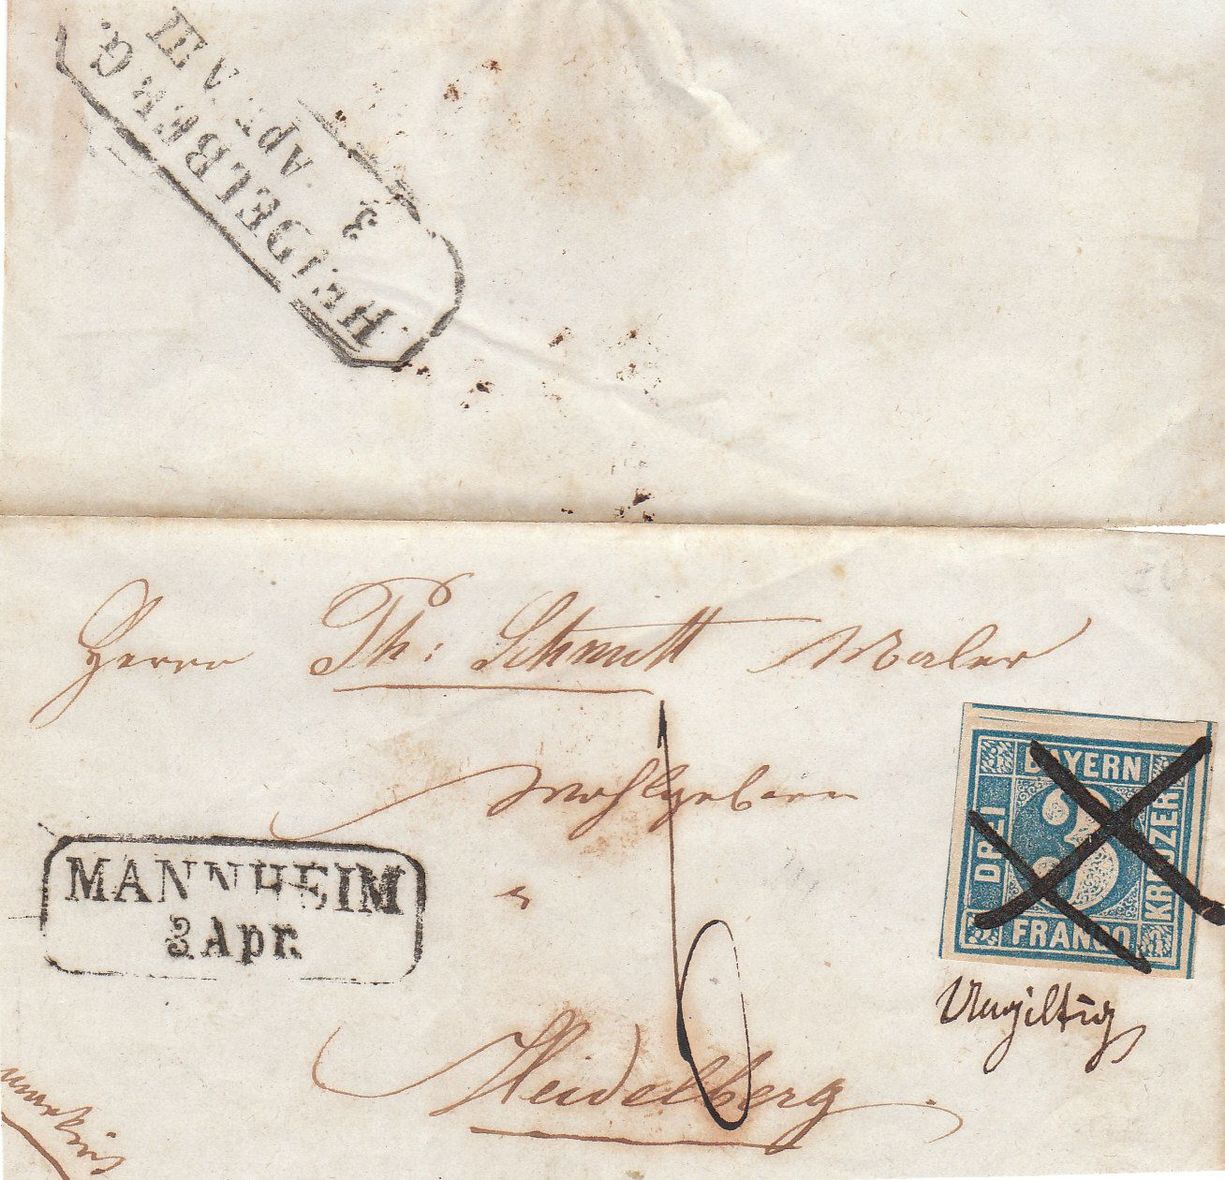 HEIDELBERG.
3 Apr. A III
Herrn Th: Schmitt Maler
Wohlgeboren
MANNHEIM
3 Apr.
BAYERN
DREI
3
KREUZER
FRANCO
Ungiltig
6
Heidelberg